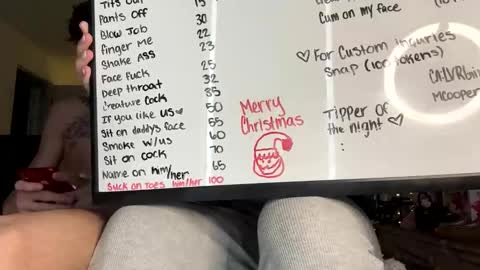 Tits out 15
Pants Off
Blow Job 30
finger me 22
Shake Ass 23
Face fuck 25
Deep throat 32
Creature Cock 35
If you like us 50
Sit on daddy's face 55
Smoke w/us 60
Sit on cock 70
Name on him/her 65
Suck on Toes him/her 100
Merry
Christmas
Cum on my face
♡ For Custom inquiries
Snap (100 tokens)
Mcooper
Tipper of
the night ♡
: